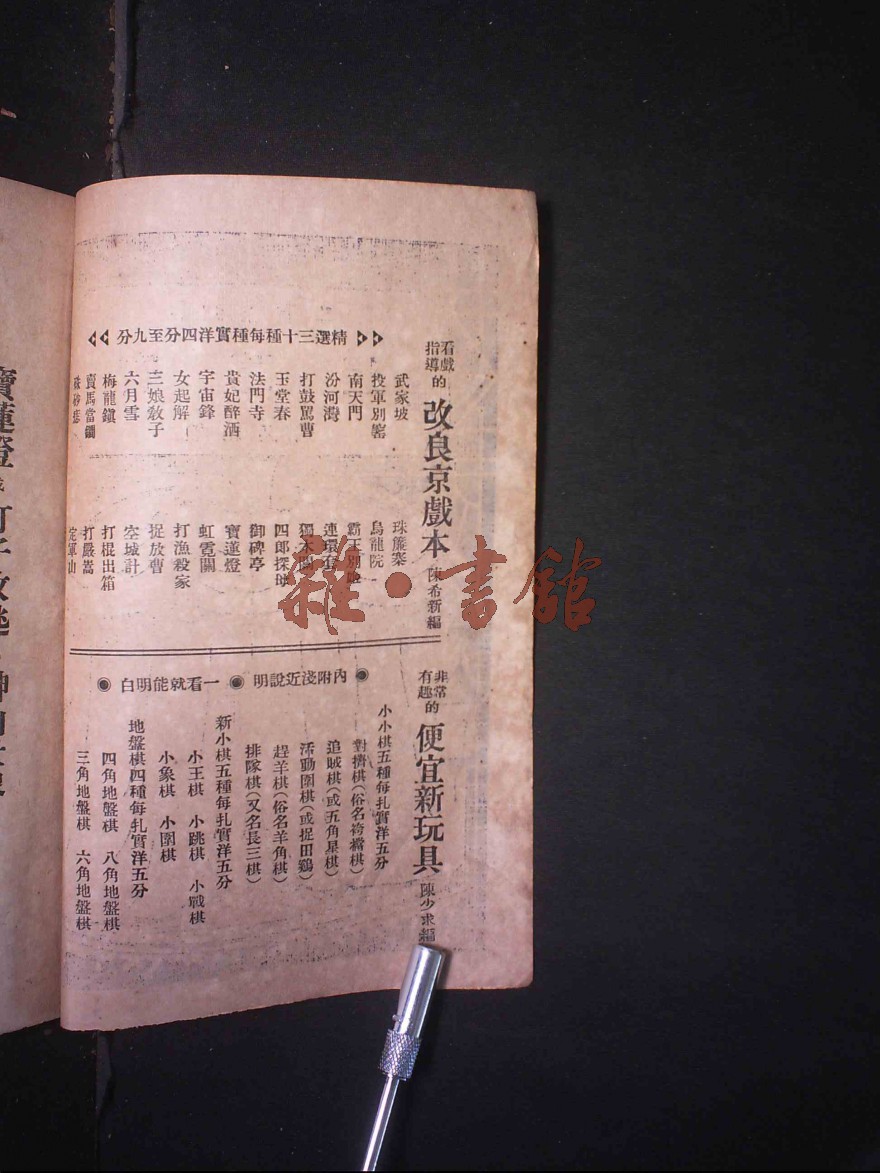 看戲指導的 改良京戲本 陳希新編
精選三十種每種實洋四分至九分
武家坡
投軍別窰
南天門
汾河灣
打鼓罵曹
玉堂春
法門寺
貴妃醉酒
宇宙鋒
女起解
三娘教子
六月雪
梅龍鎮
賣馬當鐧
珠砂痣
珠簾寨
烏龍院
霸王別姬
連環套
獨木關
四郎探母
御碑亭
寶蓮燈
虹霓關
打漁殺家
捉放曹
空城計
打棍出箱
打嚴嵩
定軍山
非常有趣的 便宜新玩具 陳少求編
內附淺近說明 一看就能明白
小小棋五種每扎實洋五分
對擠棋(俗名棋)
追賊棋(或五角星棋)
活動圍棋(或捉田鷄)
趕羊棋(俗名羊角棋)
排隊棋(又名長三棋)
新小棋五種每扎實洋五分
小王棋 小跳棋 小戰棋
小象棋 小圍棋
地盤棋四種每扎實洋五分
四角地盤棋 八角地盤棋
三角地盤棋 六角地盤棋
寶蓮燈
雜·書館